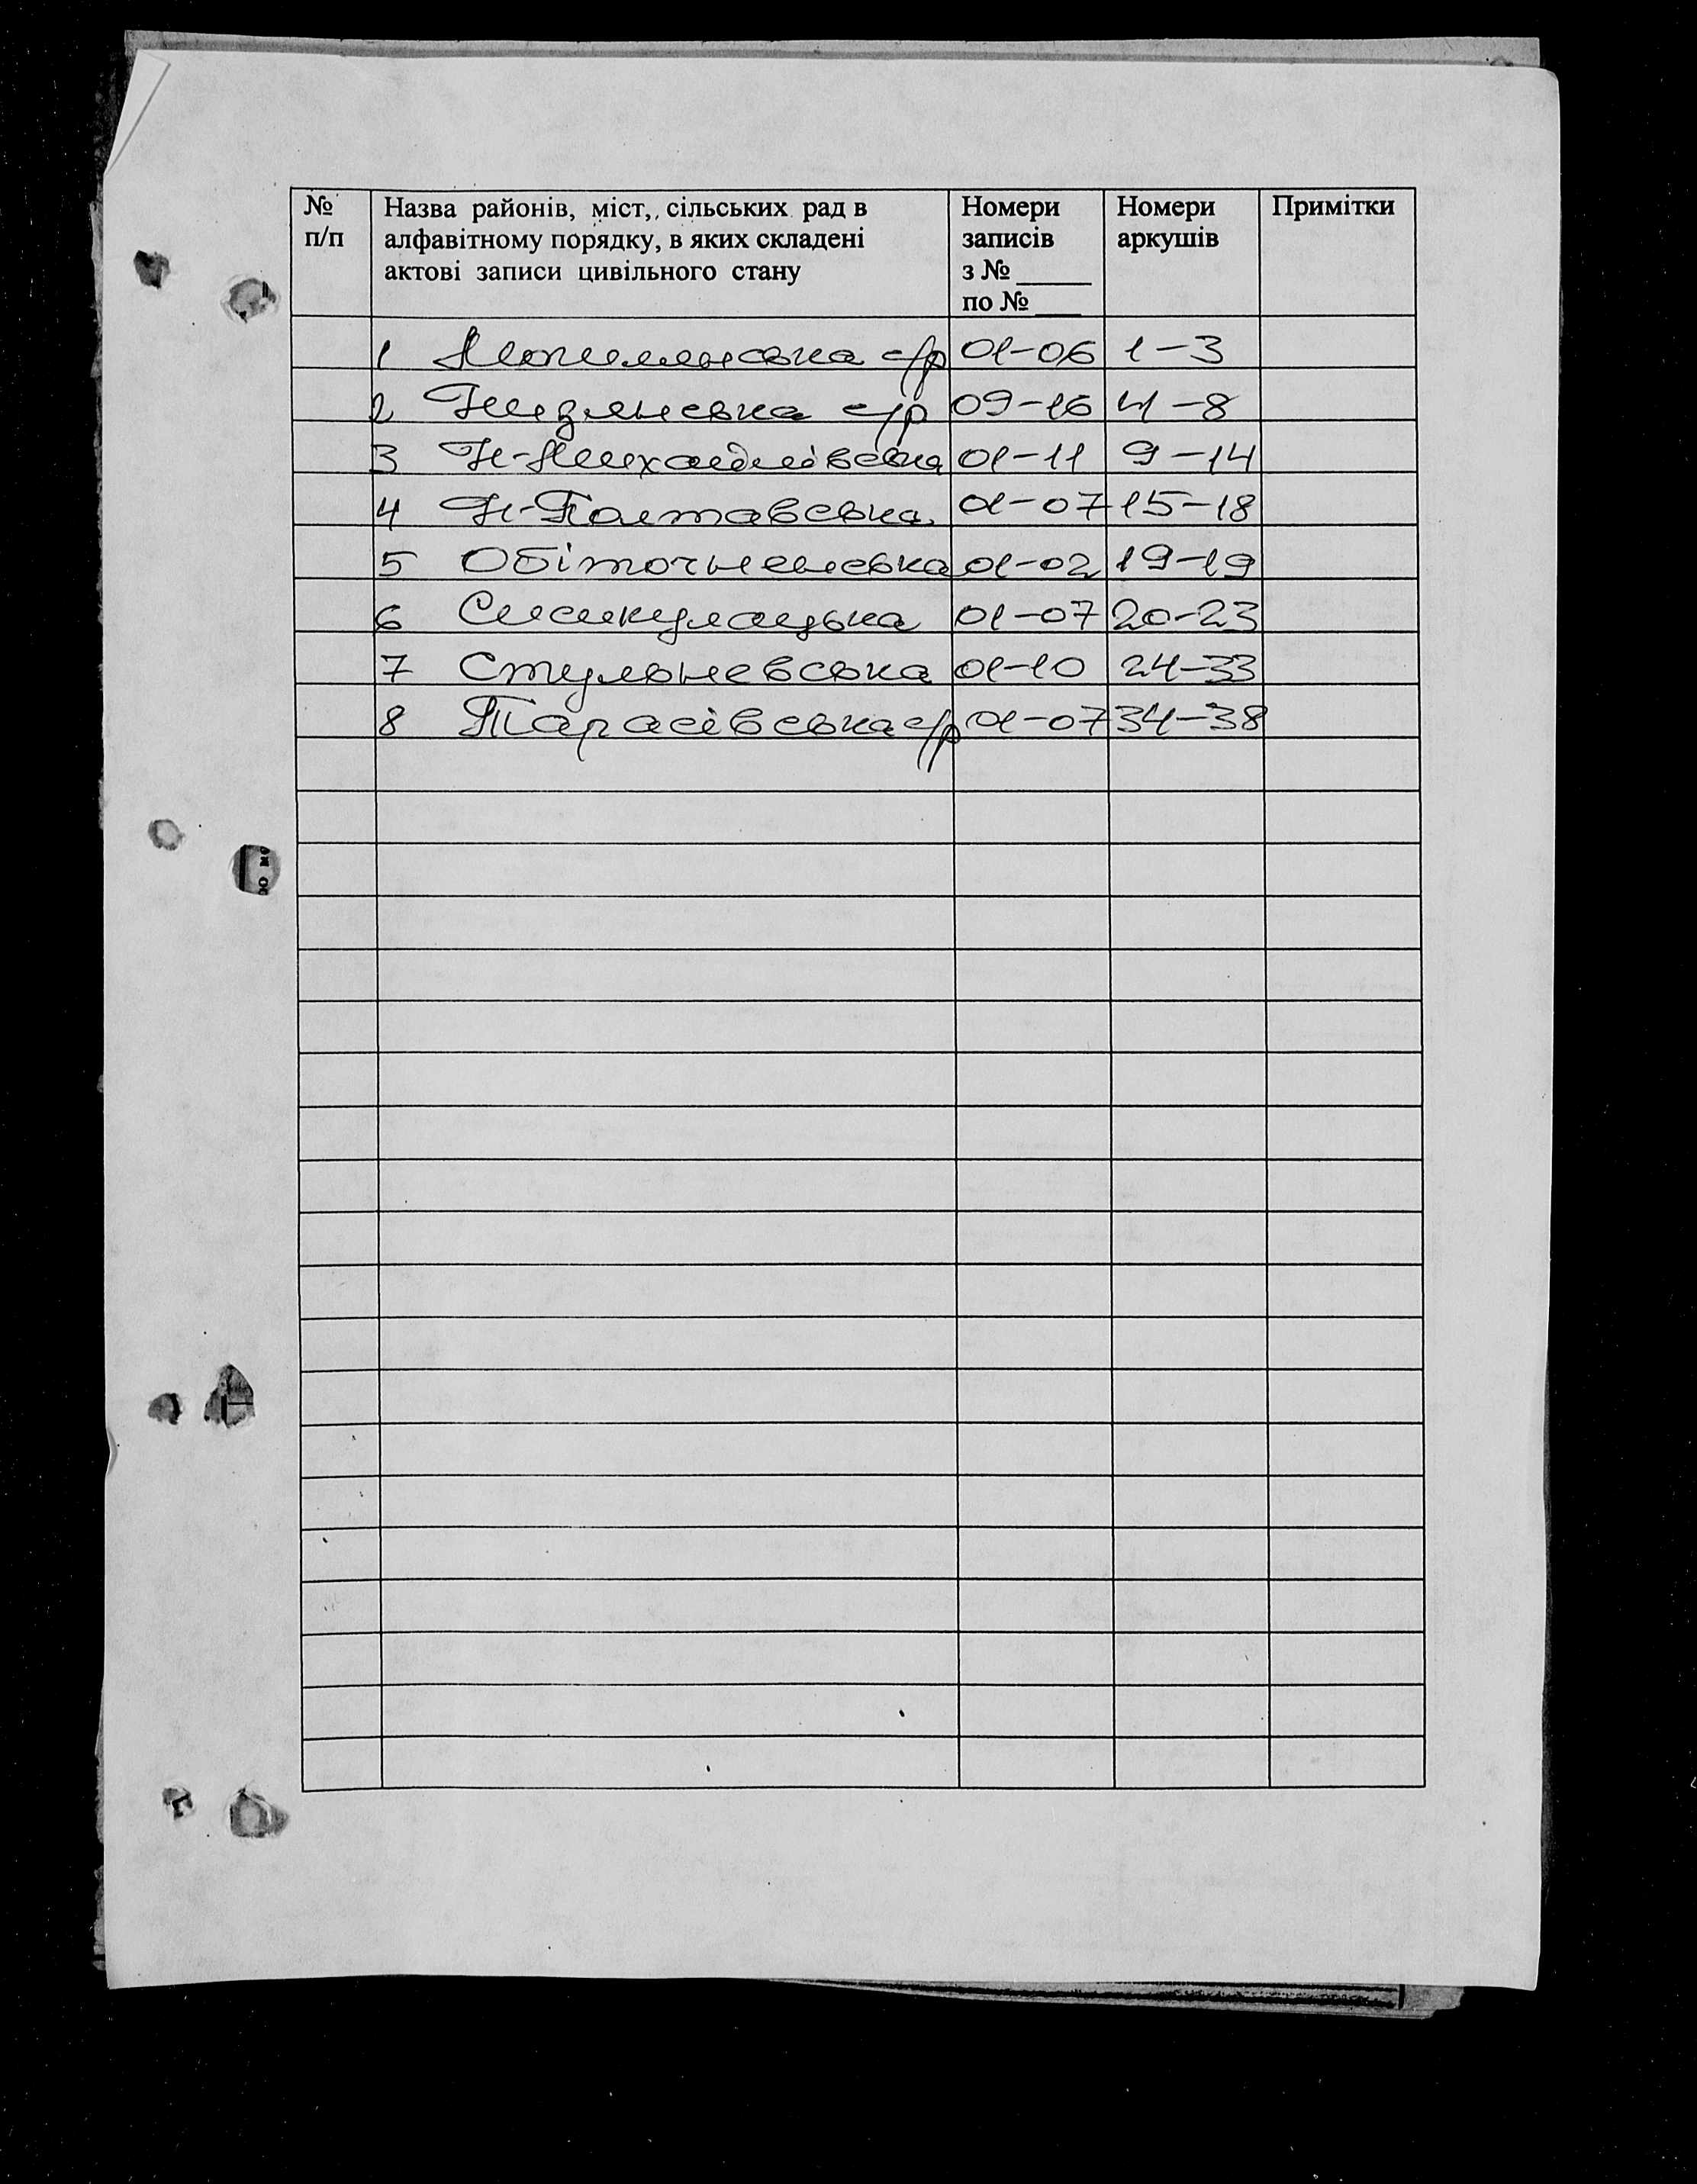 № п/п
Назва районів, міст, сільських рад в алфавітному порядку, в яких складені актові записи цивільного стану
Номери записів з № ____ по № ___
Номери аркушів
Примітки
1 с/р 01-06 1-3
2 с/р 09-16 4-8
3 Н-Михайлівська 01-11 9-14
4 Н-Полтавська 01-07 15-18
5 01-02 19-19
6 01-07 20-23
7 Стульневська 01-10 24-33
8 Тарасівська с/р 01-07 34-38